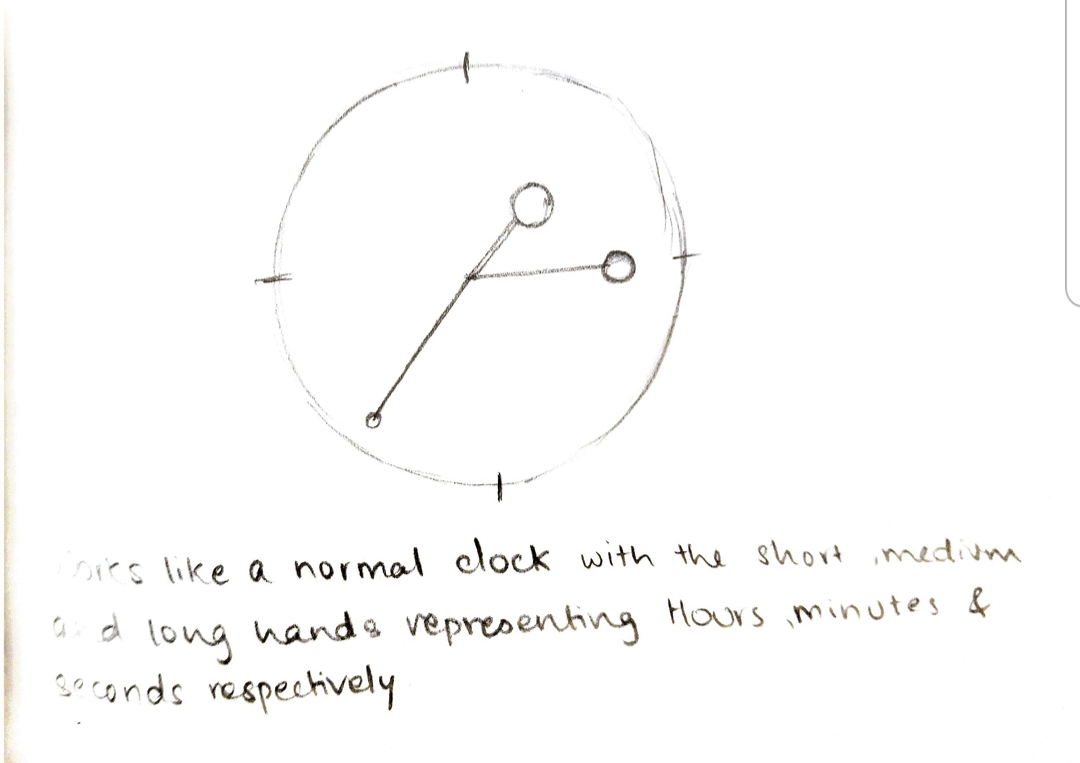 works like a normal clock with the short, medium
and long hands representing Hours, minutes &
seconds respectively